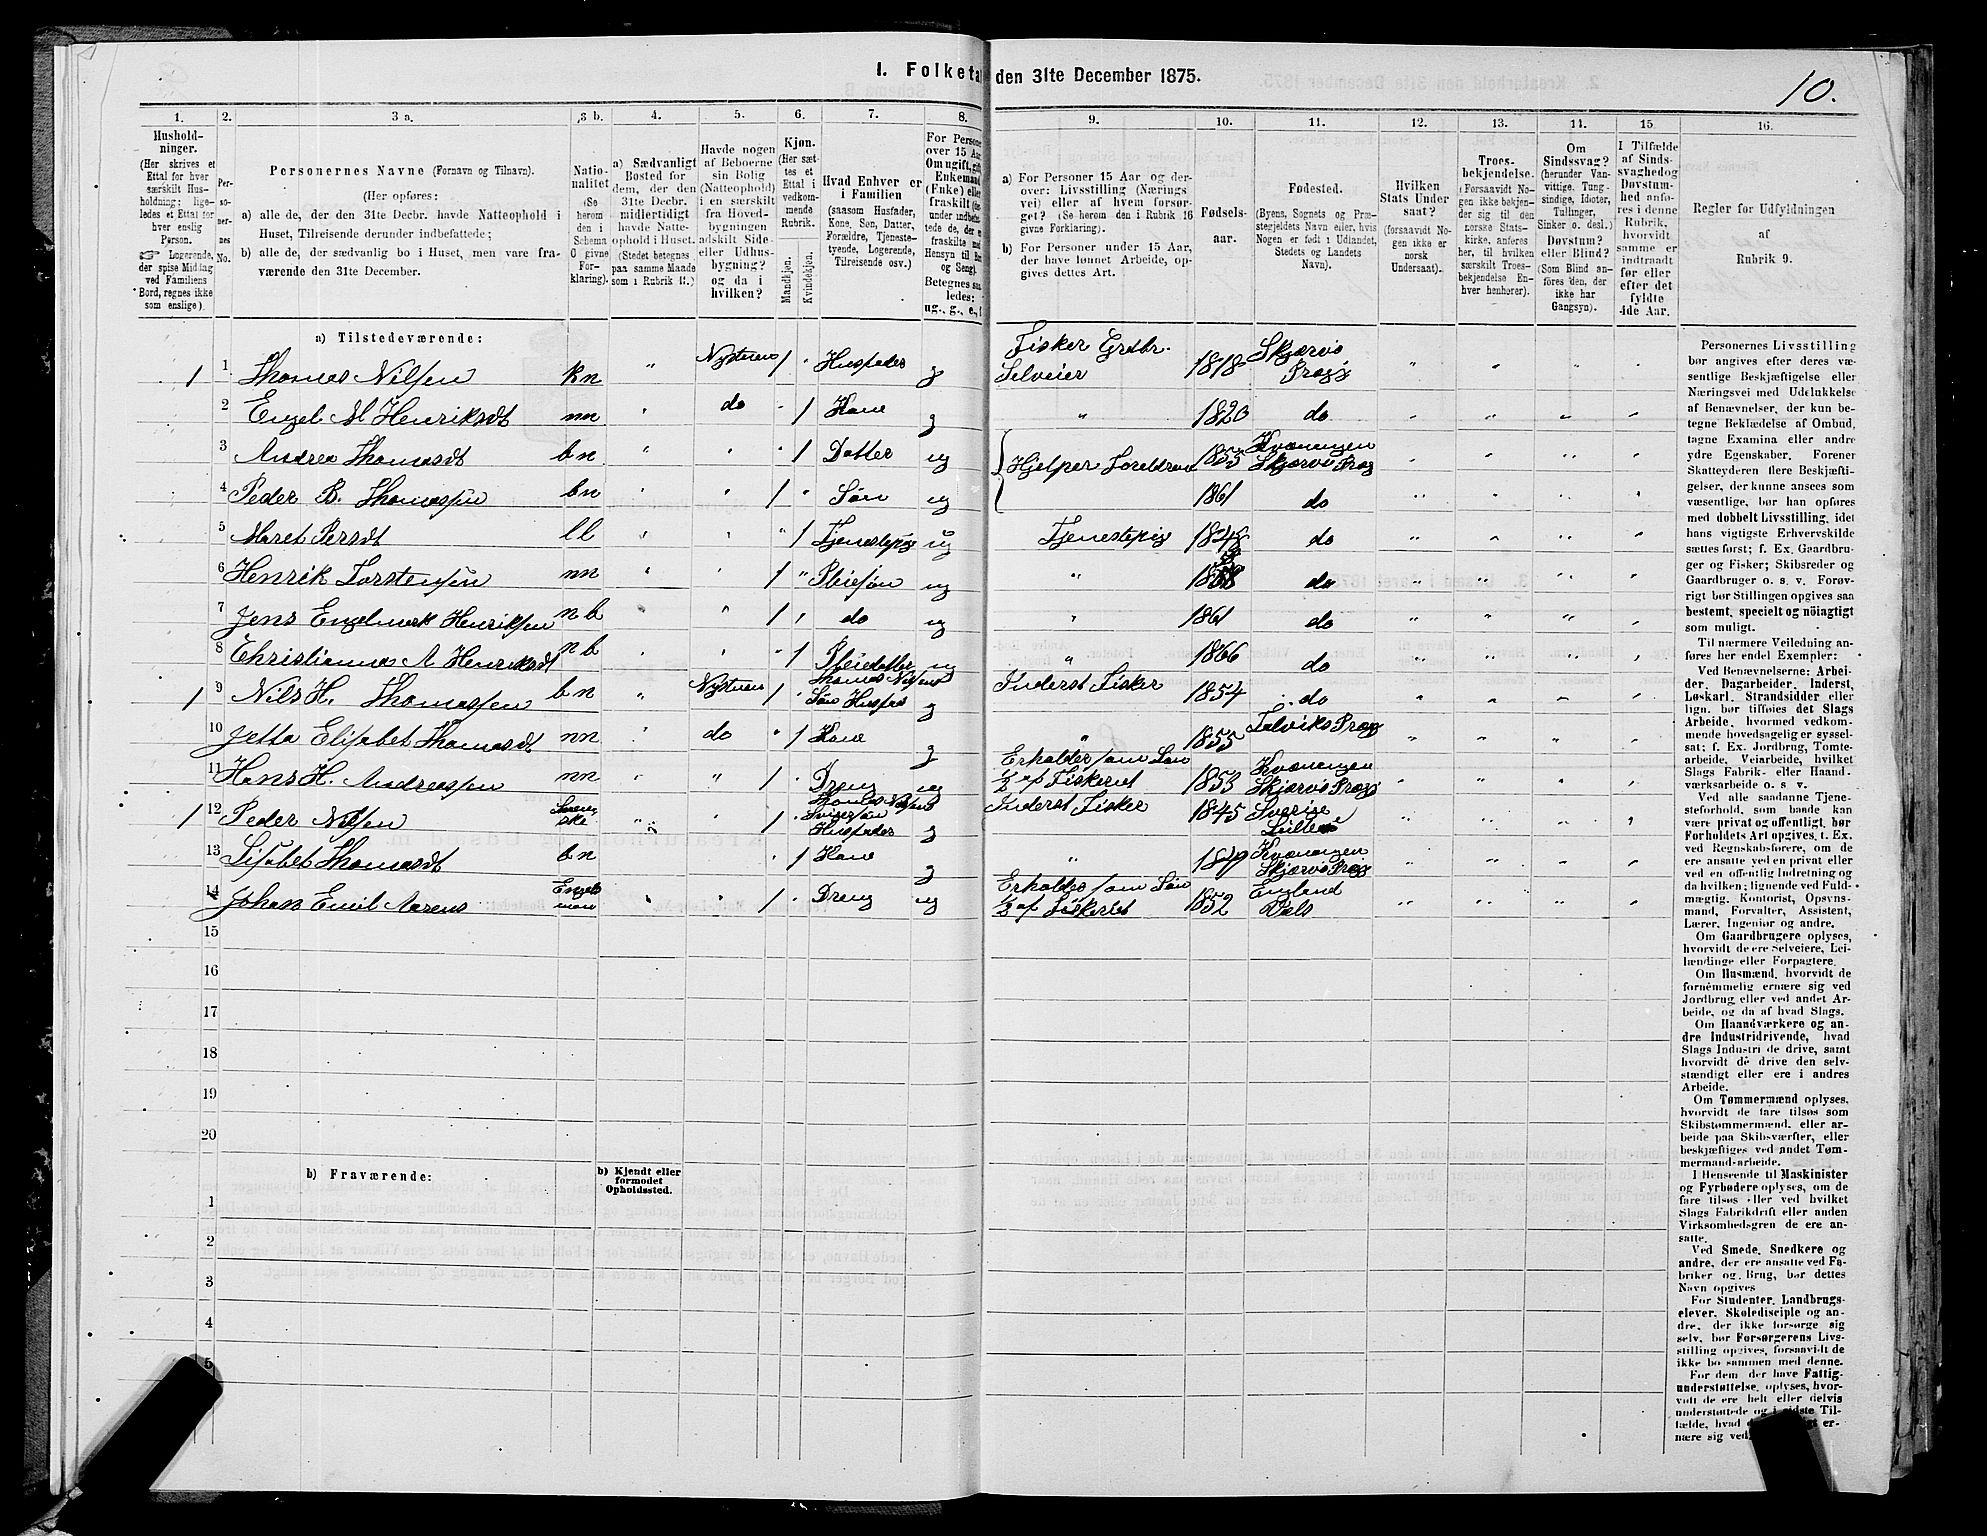 1. Folketa den 31te December 1875.
10.
1.
2.
3 a.
3 b.
4.
5.
6.
7.
8.
9.
10.
11.
12.
13.
14.
15
16.
Hushold-
ninger.
(Her skrives et
Ettal for hver
særskilt Hus-
holdning; lige-
ledes et Ettal for
hver enslig
Person.
Logerende,
der spise Middag
ved Familiens
Bord, regnes ikke
som enslige).
Per-
so-
ner-
nes
No.
Personernes Navne (Fornavn og Tilnavn).
(Her opføres:
a) alle de, der den 31te Decbr. havde Natteophold i
Huset, Tilreisende derunder indbefattede;
b) alle de, der sædvanlig bo i Huset, men vare fra-
værende den 31te December.
Natio-
nalitet
(Se
herom
den i
Schema
C givne
For-
klaring).
a) Sædvanligt
Bosted for
dem, der den
31te Decbr.
midlertidigt
havde Natte-
ophold i Huset.
(Stedet betegnes
paa samme Maade
som i Rubrik 11.)
Havde nogen
af Beboerne
sin Bolig
(Natteophold)
i en særskilt
fra Hoved-
bygningen
adskilt Side-
eller Udhus-
bygning?
og da i
hvilken?
Kjøn.
(Her sæt-
tes et
Ettal i
vedkom-
mende
Rubrik.
Mandkjøn.
Kvindekjøn.
Hvad Enhver er
i Familien
(saasom Husfader,
Kone, Søn, Datter,
Forældre, Tjeneste-
tyende, Logerende,
Tilreisende osv.)
For Persone
over 15 Aar
Om ugift, gift
Enkemand
(Fnke) eller
fraskilt
ug., g., e.,
a) For Personer 15 Aar og der-
over: Livsstilling (Nærings
vei) eller af hvem forsør-
get? (Se herom den i Rubrik 16
givne Forklaring).
b) For Personer under 15 Aar,
der have lønnet Arbeide, op-
gives dettes Art.
Fødsels-
aar.
Fødested.
(Byens, Sognets og Præ-
stegjeldets Navn eller, hvis
Nogen er født i Udlandet,
Stedets og Landets
Navn).
Hvilken
Stats Under
saat?
(forsaavidt No-
gen ikke er
norsk
Undersaat).
Troes-
bekjendelse.
(Forsaavidt No-
gen ikke bekjen-
der sig til den
norske Stats-
kirke, anføres
her, til hvilken
særskilt Troes-
bekjendelse En-
hver henhører).
Om
Sindssvag?
(herunder Van-
vittige, Tung-
sindige, Idioter,
Tullinger,
Sinker o. desl.)
Døvstum?
eller Blind?
(Som Blind an-
føres den, der
ikke har
Gangsyn).
I Tilfælde
af Sinds-
svaghed og
Døvstum-
hed anfø-
res i denne
Rubrik,
hvorvidt
samme er
indtraadt
før eller
efter det
fyldte
4de Aar.
Regler for Udfyldningen
af
Rubrik 9.
a) Tilstedeværende:
1 1 Thomas Nilsen kn " Husfader g Fisker Grdbr. Selveier 1818 Skjærvø Præg
2 Engel M Henriksdt nn " do 1 Kone g " 1820 do
3 Andrea Thomasdt bn " " 1 Datter ug Hjelper Foreldren 1853 Kvænangen Skjærvø Præg
4 Peder B. Thomassen bn " " 1 Søn ug 1861 do
5 Maret Persdt ll " " 1 Tjenestepige ug Tjenestepig 1848 do
6 Henrik Torstensen nn " " 1 " Pleiesøn ug " do
7 Jens Engelmark Henriksen nb " 1 " do ug " 1861 do
8 Christianna A Henriksdt nb " " 1 Pleiedatter ug " 1866 do
1 9 Nils H. Thomassen bn " 1 Thomas Nilsens Søn Husfad g Inderst Fisker 1854 do
10 Jetta Elisabet Thomasdt nn " do " 1 Kone g " 1855 Talviks Præg
11 Hans H. Andreassen nn " " 1 " Dreng ug Erholder som Løn 1/2 af Fiskeriet 1853 Kvænangen Skjærvø Præg
1 12 Peder Nilsen Svenske " 1 Thomas Nilsens Svigersøn Husfader g Inderst Fisker 1845 Sverige
13 Lisabet Thomasdt bn " 1 Kone g " Kvænangen Skjærvø Præg
14 Johan Emil Aarens Engelsman " " 1 " Dreng ug Erholder som Løn 1/2 af Fiskeriet 1852 England Vals
15
16
17
18
19
20
b) Fraværende:
b) Kjendt eller
formodet
Opholdssted.
1
2
3
4
5
Personernes Livsstilling
bør angives efter deres væ-
sentlige Beskjæftigelse eller
Næringsvei med Udelukkelse
af Benævnelser, der kun be-
tegne Beklædelse af Ombud,
tagne Examina eller andre
ydre Egenskaber. Forener
Skatteyderen flere Beskjæfti-
gelser, der kunne ansees som
væsentlige, bør han opføres
med dobbelt Livsstilling, idet
hans vigtigste Erhvervskilde
sættes først; f. Ex. Gaardbru-
ger og Fisker; Skibsreder og
Gaardbruger o. s. v. Forøv-
rigt bør Stillingen opgives saa
bestemt, specielt og nøiagtigt
som muligt.
Til nærmere Veiledning an-
føres her endel Exempler:
Ved Benævnelserne: Arbei-
der, Dagarbeider, Inderst,
Løskarl, Strandsidder eller
lign. bør tilføies det Slags
Arbeide, hvormed vedkom-
mende hovedsagelig er syssel-
sat; f. Ex. Jordbrug, Tomte-
arbeide, Veiarbeide, hvilket
Slags Fabrik- eller Haand-
værksarbeide o. s. v.
Ved alle saadanne Tjene-
steforhold, som baade kan
være privat og offentligt, bør
Forholdets Art opgives, t. Ex.
ved Regnskabsførere, om de
ere ansatte ved en privat eller
ved en offentlig Indretning og
da hvilken; lignende ved Fuld-
mægtig, Kontorist, Opsyns-
mand, Forvalter, Assistent,
Lærer, Ingeniør og andre.
Om Gaardbrugere oplyses,
hvorvidt de ere Selveiere, Lei-
lændinge eller Forpagtere.
Om Husmænd, hvorvidt de
fornemmelig ernære sig ved
Jordbrug eller ved andet Ar-
beide, og da af hvad Slags.
Om Haandværkere og an-
dre Industridrivende, hvad
Slags Industri de drive, samt
hvorvidt de drive den selv-
stændigt eller ere i andres
Arbeide.
Om Tømmermænd oplyses,
hvorvidt de fare tilsøs som
Skibstømmermænd, eller ar-
beide paa Skibsværfter, eller
beskjæftiges ved andet Tøm-
mermand-arbeide.
I Henseende til Maskinister
og Fyrbødere oplyses, om de
fare tilsøs eller ved hvilket
Slags Fabrikdrift eller anden
Virksomhedsgren de ere an-
satte.
Ved Smede, Snedkere og
andre, der ere ansatte ved Fa-
briker og Brug, bør dettes
Navn opgives
For Studenter, Landbrugs-
elever, Skoledisciple og an-
dre, der ikke forsørge sig
selv, bør Forsørgerens Livs-
stilling opgives, forsaavidt de
ikke bo sammen med denne.
For dem der have Fattig-
understøttelse, oplyses, hvor-
vidt de ere helt eller delvis
understøttede og i sidste Til-
fælde, hvad er-
nære sig ved